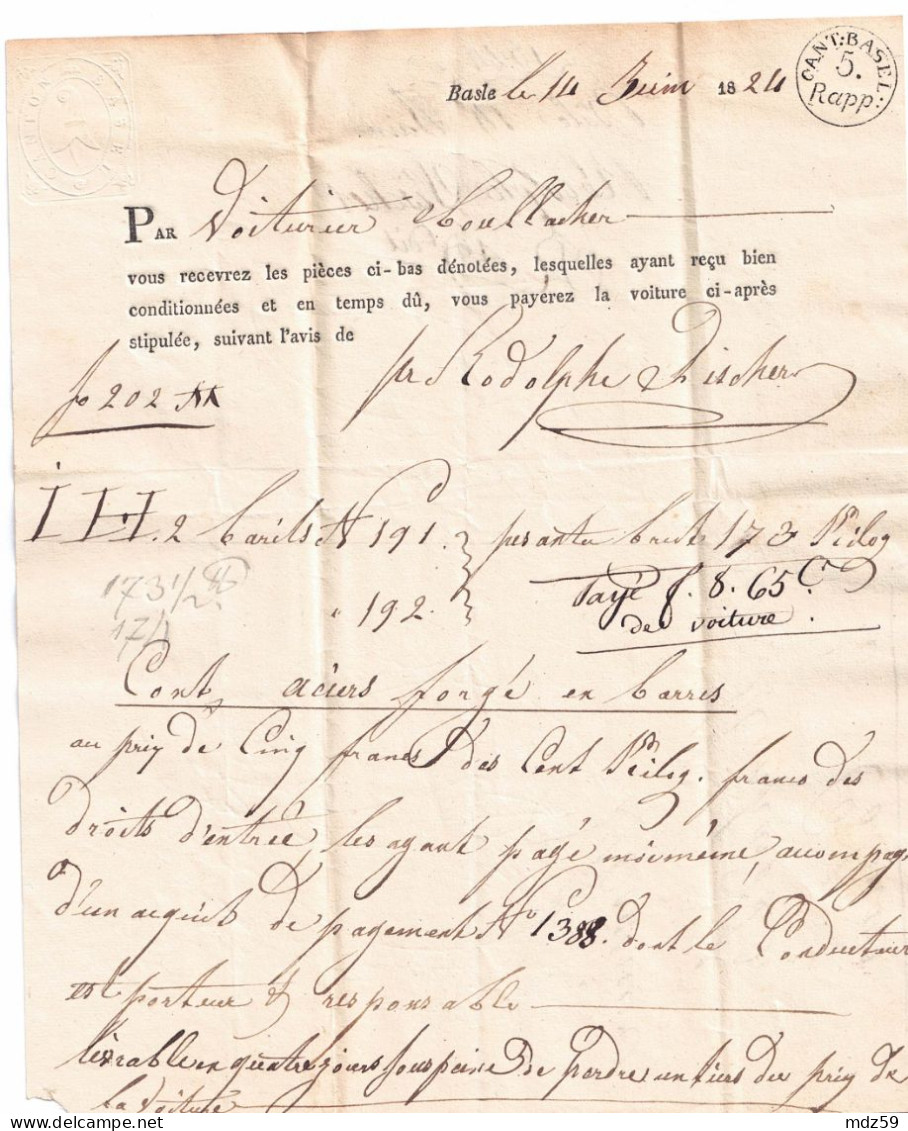 CANTON BASEL
Basle le 14 Juin 1824
CANT: BASEL:
5.
Rapp:
PAR Voiturier
vous recevrez les pièces ci-bas dénotées, lesquelles ayant reçu bien
conditionnées et en temps dû, vous payerez la voiture ci-après
stipulée, suivant l'avis de
pr Rodolphe Discher
fo 202
I H. 2 barils N° 191. pesant brut 173 Kilog
173 1/2
" 192. Payé f. 8. 65 C.
17/1 de voiture.
Cont aciers forgé en barres
au prix de Cinq francs des Cent Kilog. francs des
droits d'entrée, les ayant payé moi même, accompag
d'un acquit de payement N° 1388. dont le Conducteur
est porteur & responsable
livrable en quatre jours sous peine de perdre un tiers du prix de
la voiture
mdz59